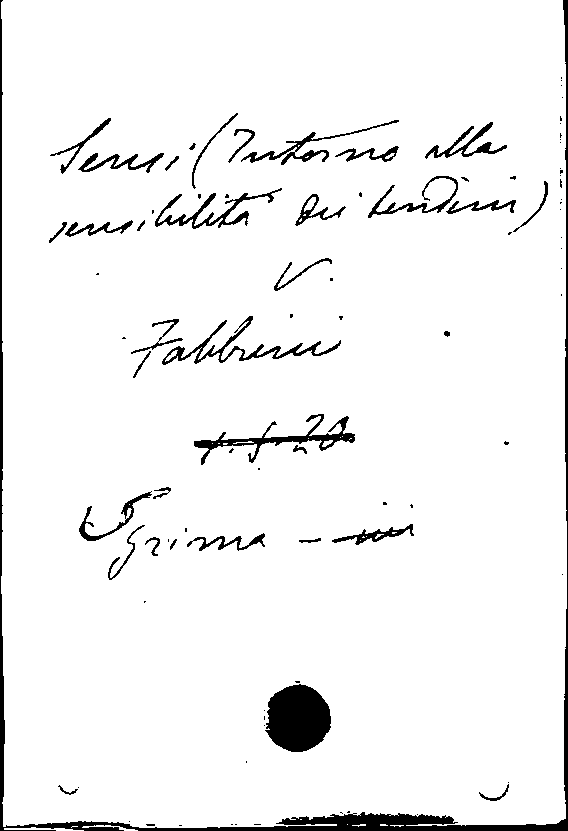 Sensi (Intorno alla
sensibilità dei tendini)
V.
Fabbrini
1.5.20
Grima - iii